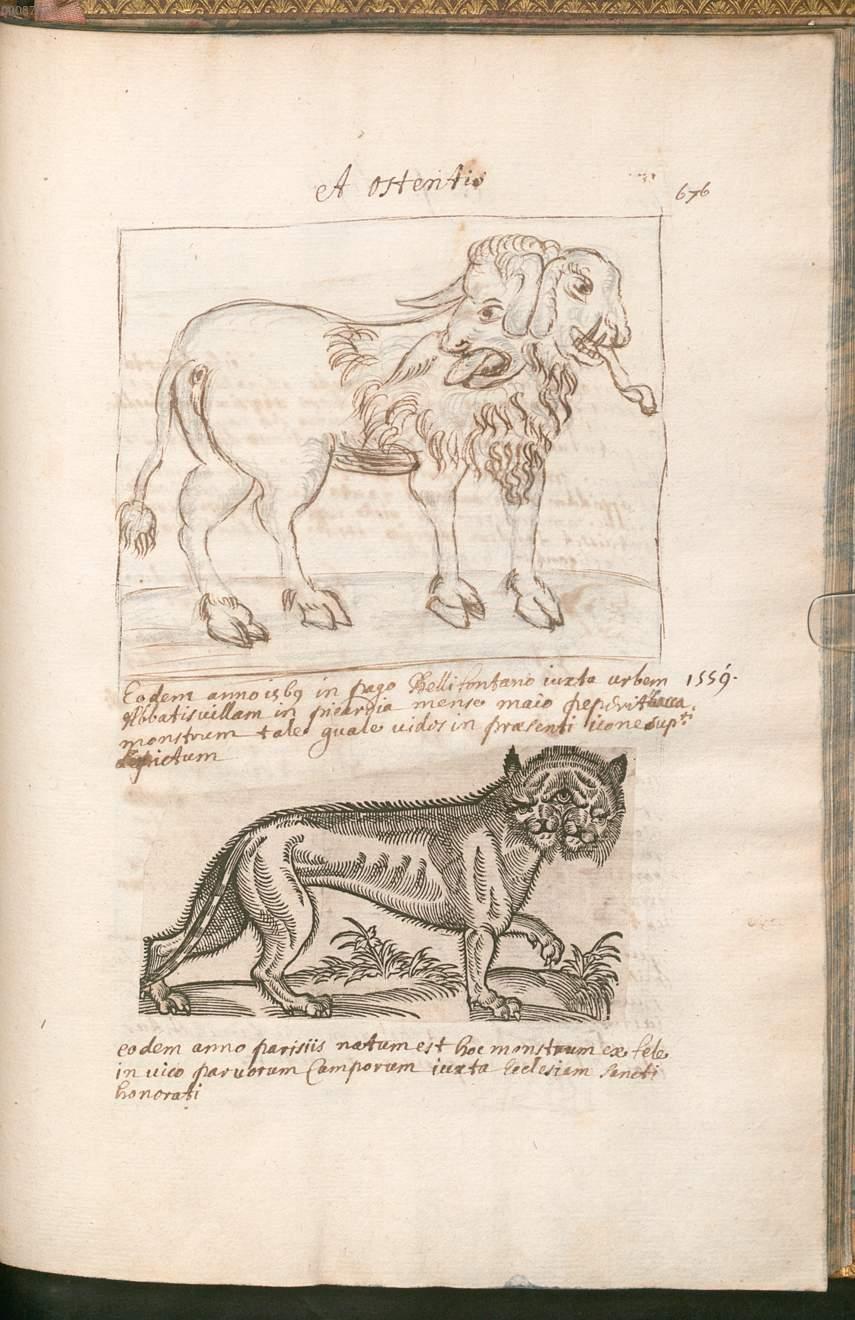 A ostentis
676
Eodem anno 1569 in pago Bellifontano iuxta urbem 1559.
Abbatisvillam in picardia mense maio peperit vacca
monstrum tale quale vides in præsenti icone sup.ti
depictum
eodem anno parisiis natum est hoc monstrum ex fele
in vico parvorum Camporum iuxta Ecclesiam sancti
honorati